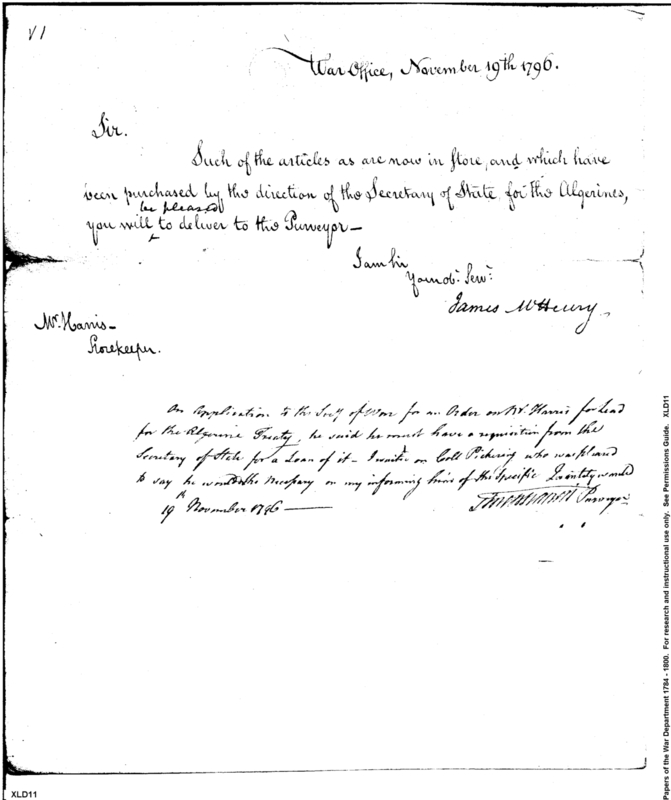 VI
War Office, November 19th 1796.
Sir.
Such of the articles as are now in store, and which have
been purchased by the direction of the Secretary of State for the Algerines,
be pleased
you will to deliver to the Purveyor—
I am Sir
Your obt. Servt.
James McHenry
Mr. Harris—
Storekeeper.
On application to the Secy of War for an Order on Mr. Harris for Lead
for the Algerine Treaty, he said he must have a requisition from the
Secretary of State for a Loan of it— I waited on Coll Pickering who was pleased
to say he would the necessary on my informing him of the specific Quantity wanted
Purveyor
19th November 1796—
Papers of the War Department 1784 - 1800. For research and instructional use only. See Permissions Guide. XLD11
XLD11